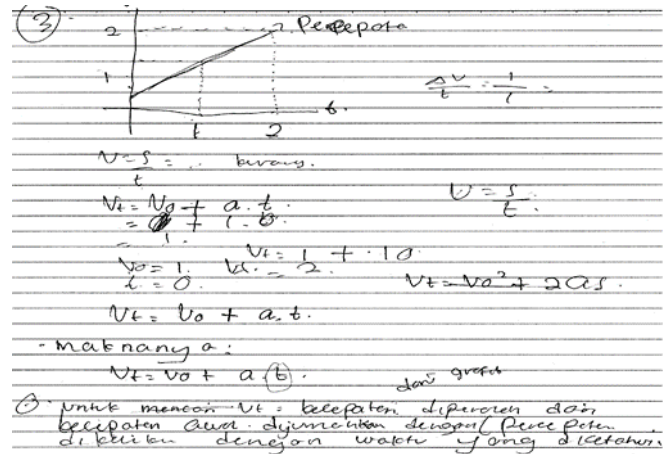 3
2
1
1 2
ΔV/t = 1/1 =
V = S/t = ..
V = S/t.
Vt = Vo + a. t.
= 1.
Vt = 1 + . 10
Vo = 1. = 2.
= 0.
Vt = Vo² + 2as.
Vt = Vo + a. t.
- maknanya:
Vt = Vo + a (t).
dari grafik
untuk mencari Vt = kecepatan diperoleh dari
kecepatan awal dijumlahkan dengan (percepatan
dikalikan dengan waktu yang diketahui.